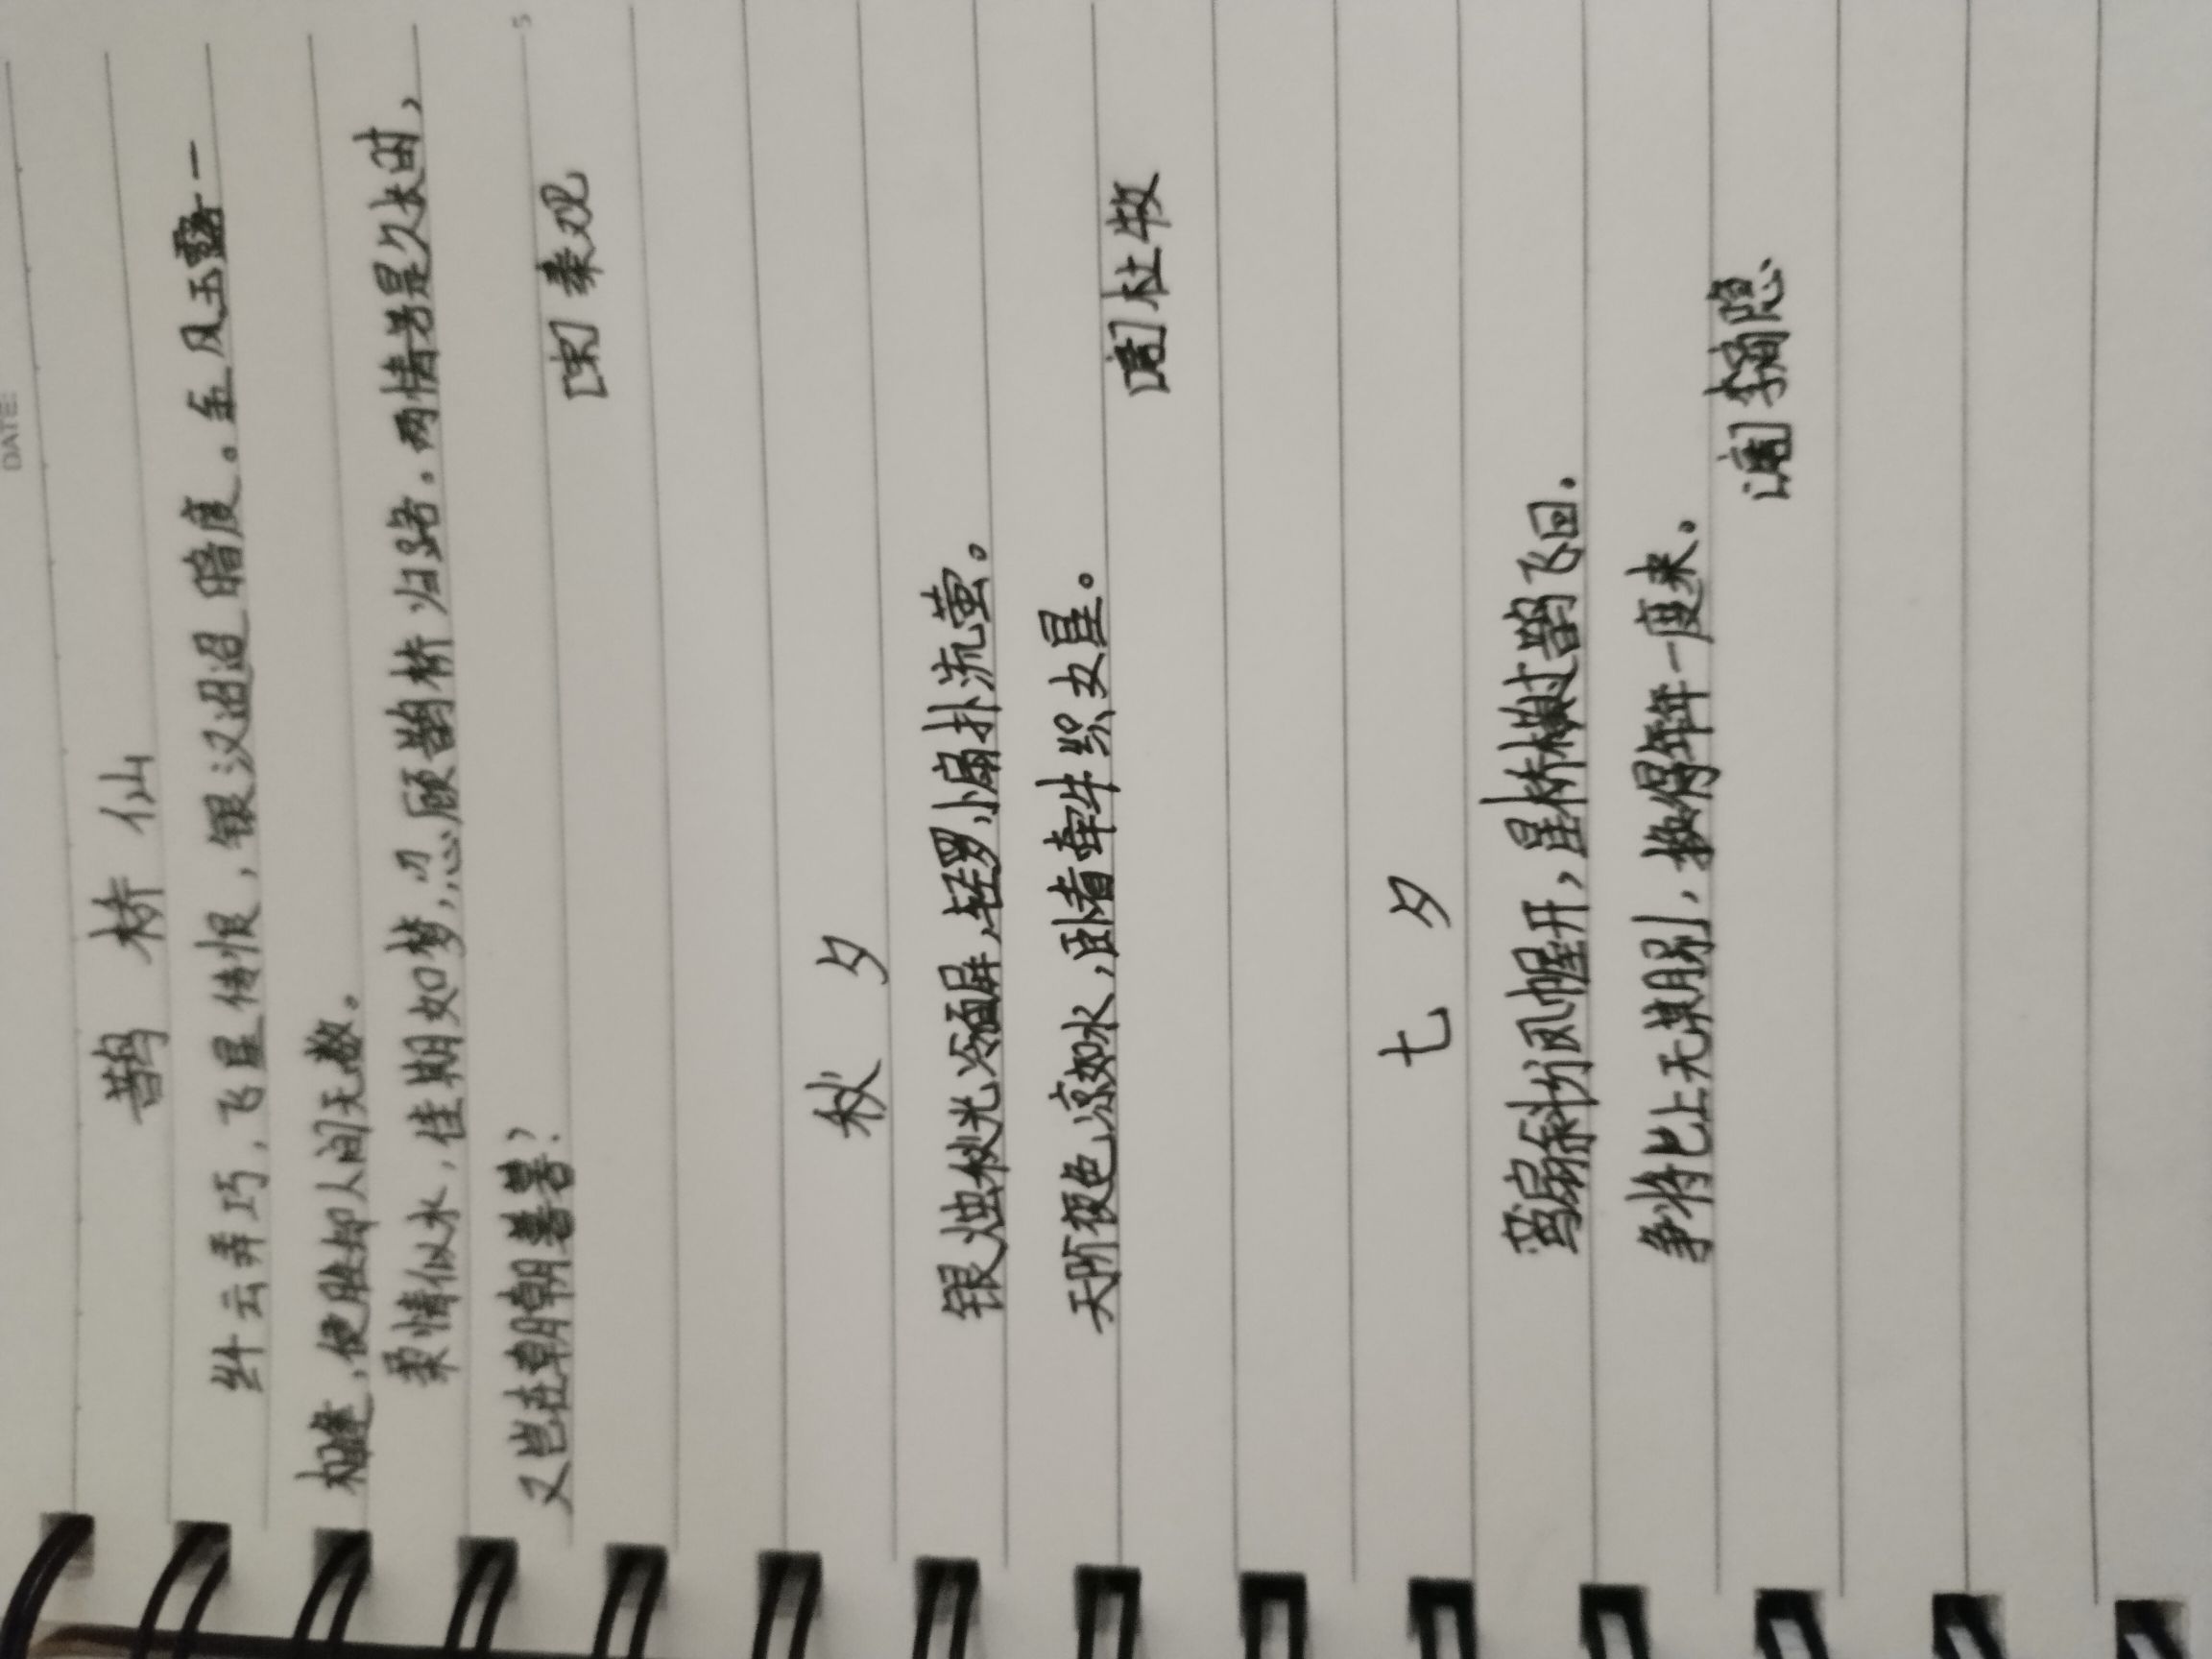 DATE:
鹊桥仙
纤云弄巧，飞星传恨，银汉迢迢暗度。金风玉露一
相逢，便胜却人间无数。
柔情似水，佳期如梦，忍顾鹊桥归路。两情若是久长时，
又岂在朝朝暮暮？
[宋]秦观
秋夕
银烛秋光冷画屏，轻罗小扇扑流萤。
天阶夜色凉如水，卧看牵牛织女星。
[唐]杜牧
七夕
鸾扇斜分凤幄开，星桥横过鹊飞回。
争将世上无期别，换得年年一度来。
[唐]李商隐